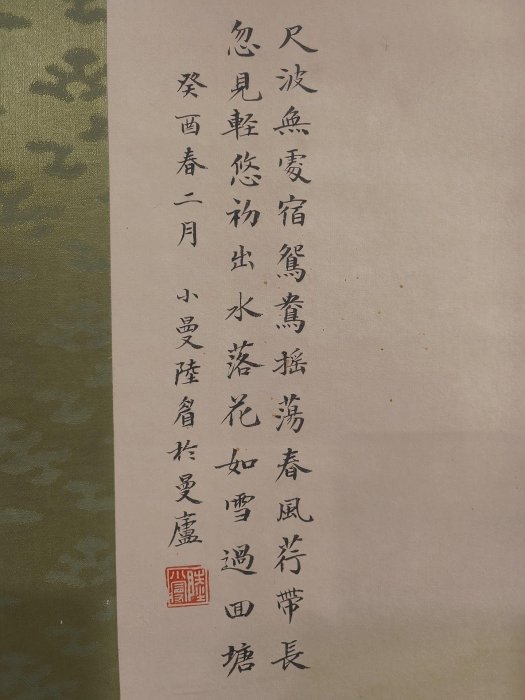 尺波無處宿鴛鴦搖蕩春風荇帶長
忽見輕悠初出水落花如雪過回塘
癸酉春二月 小曼陸眉於曼廬
陸小曼